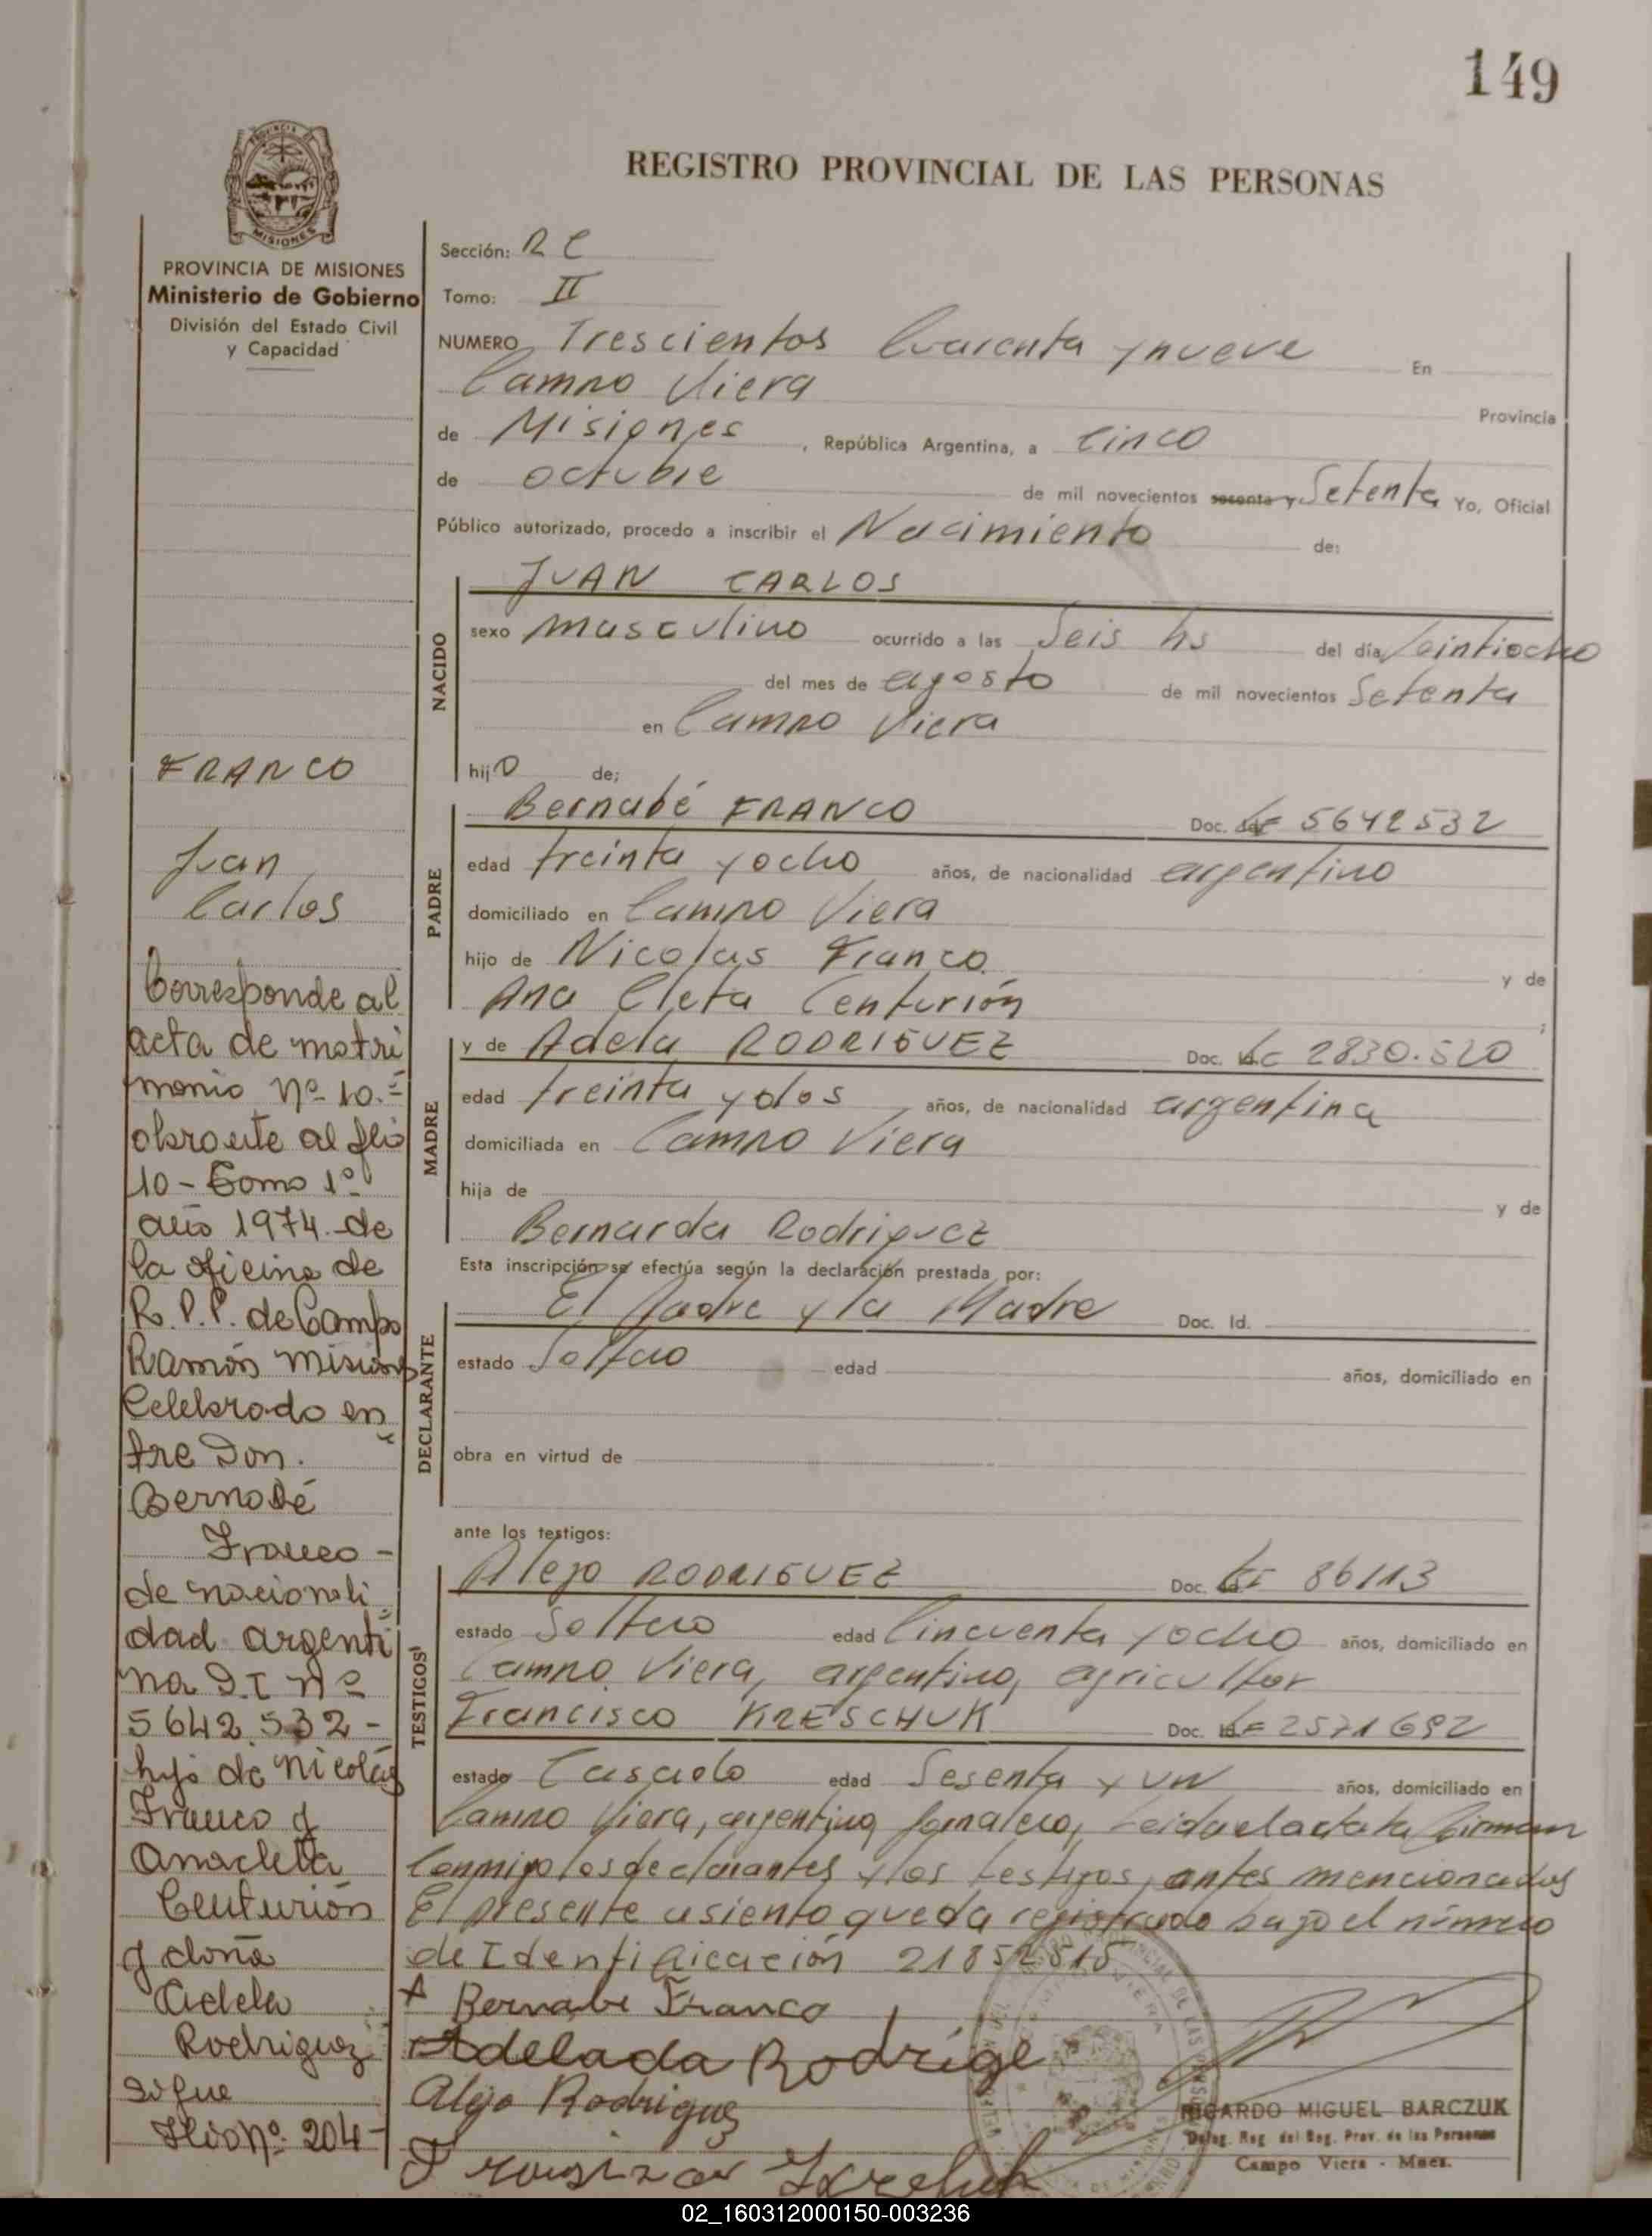 149
REGISTRO PROVINCIAL DE LAS PERSONAS
PROVINCIA DE MISIONES
Ministerio de Gobierno
División del Estado Civil
y Capacidad
Sección: R C
Tomo: II
NUMERO Trescientos Cuarenta y nueve En
Campo Viera Provincia
de Misiones, República Argentina, a cinco
de octubre de mil novecientos sesenta y Setenta Yo, Oficial
Público autorizado, procedo a inscribir el Nacimiento de:
NACIDO
JUAN CARLOS
sexo masculino ocurrido a las Seis hs del día Veintiocho
del mes de agosto de mil novecientos Setenta
en Campo Viera
hijo de;
PADRE
Bernabé FRANCO Doc. LE 5642532
edad treinta y ocho años, de nacionalidad argentino
domiciliado en Campo Viera
hijo de Nicolas Franco y de
Ana Cleta Centurión ;
MADRE
y de Adela RODRIGUEZ Doc. LC 2830.520
edad treinta y dos años, de nacionalidad argentina
domiciliada en Campo Viera
hija de y de
Bernarda Rodriguez
Esta inscripción se efectúa según la declaración prestada por:
DECLARANTE
El Padre y la Madre Doc. Id.
estado Soltero edad años, domiciliado en
obra en virtud de
ante los testigos:
TESTIGOS
Alejo RODRIGUEZ Doc. CI 86113
estado Soltero edad Cincuenta y ocho años, domiciliado en
Campo Viera, argentino, agricultor
Francisco KRESCHUK Doc. LE 2571692
estado Casado edad Sesenta y un años, domiciliado en
Campo Viera, argentino, jornalero, Leida el acta la firman
Conmigo los declarantes y los testigos, antes mencionados
El presente asiento queda registrado bajo el número
de Identificación 21852515
Bernabe Franco
Adelada Rodrige
Alejo Rodriguez
RICARDO MIGUEL BARCZUK
Deleg. Reg. del Reg. Prov. de las Personas
Campo Viera - Mnes.
FRANCO
Juan
Carlos
Corresponde al
acta de matri
monio Nº 10.=
obrante al flio
10 - Tomo 1º
año 1974 de
la oficina de
R. P. P. de Campo
Ramón Misiones
Celebrado en
tre Don.
Bernabé
Franco -
de nacionali
dad argenti
na D.I nº
5642.532 -
hijo de Nicolás
Franco y
Anacleta
Centurión
y doña
Adela
Rodriguez
Sigue
flio nº 204-
02_160312000150-003236